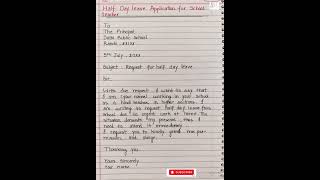 Half Day leave Application for School
Teacher
To
The Principal
Delhi Public School
Ranchi - xxxxx
5th July, 20xx
Subject : Request for half day leave
Sir,
With due request I want to say that
I am (your name) working in your school
as a hindi teacher in higher sections. I
am writing to request half day leave from
school due to urgent work at home. The
situation demands my personal
need to attend it immediately.
I request you to kindly grant me per-
mission and oblige.
Thanking you
Yours Sincerely
Your name
SUBSCRIBE